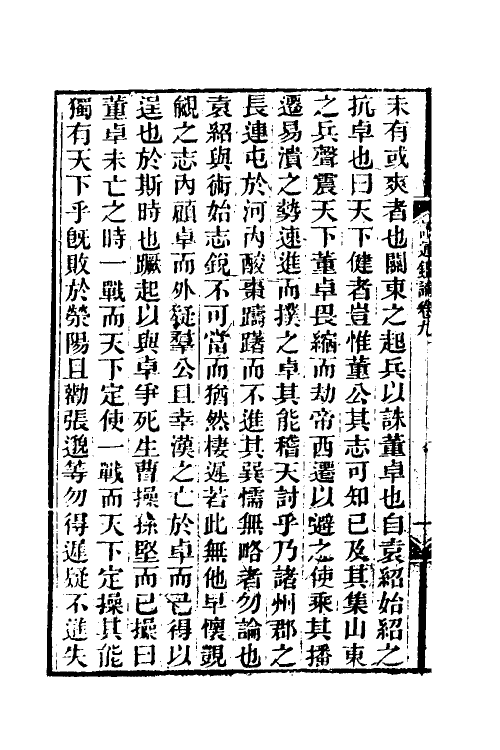 未有或爽者也關東之起兵以誅董卓也自袁紹始紹之
抗卓也曰天下健者豈惟董公其志可知已及其集山東
之兵聲震天下董卓畏縮而劫帝西遷以避之使乘其播
遷易潰之勢速進而撲之卓其能稽天討乎乃諸州郡之
長連屯於河內酸棗躊躇而不進其巽懦無略者勿論也
袁紹與術始志銳不可當而猶然棲遲若此無他早懷覬
覦之志內顧卓而外疑羣公且幸漢之亡於卓而己得以
逞也於斯時也蹶起以與卓爭死生曹操孫堅而已操曰
董卓未亡之時一戰而天下定使一戰而天下定操其能
獨有天下乎旣敗於滎陽且勸張邈等勿得遲疑不進失
通鑑論卷九